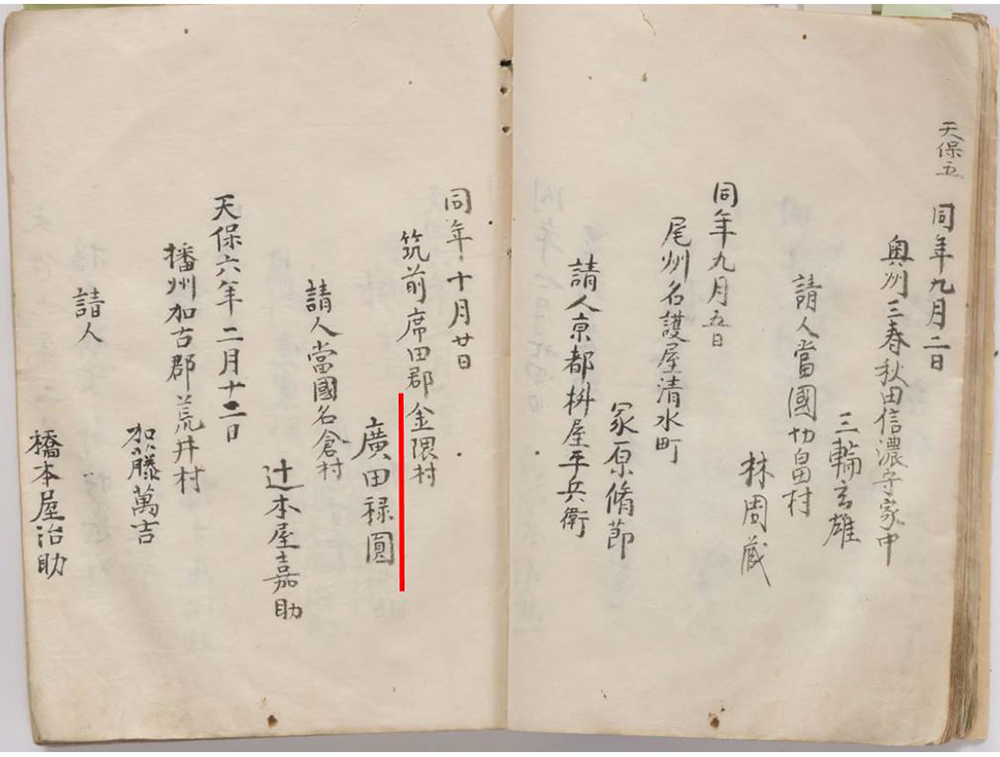 天保五
同年九月二日
奥州三春秋田信濃守家中
三輪玄雄
請人當國切畠村
林周蔵
同年九月五日
尾州名護屋清水町
冢原脩節
請人京都桝屋平兵衛
同年十月廿日
筑前席田郡金隈村
廣田禄圓
請人當國名倉村
辻本屋嘉助
天保六年二月十二日
播州加古郡荒井村
加藤萬吉
請人
橋本屋治助